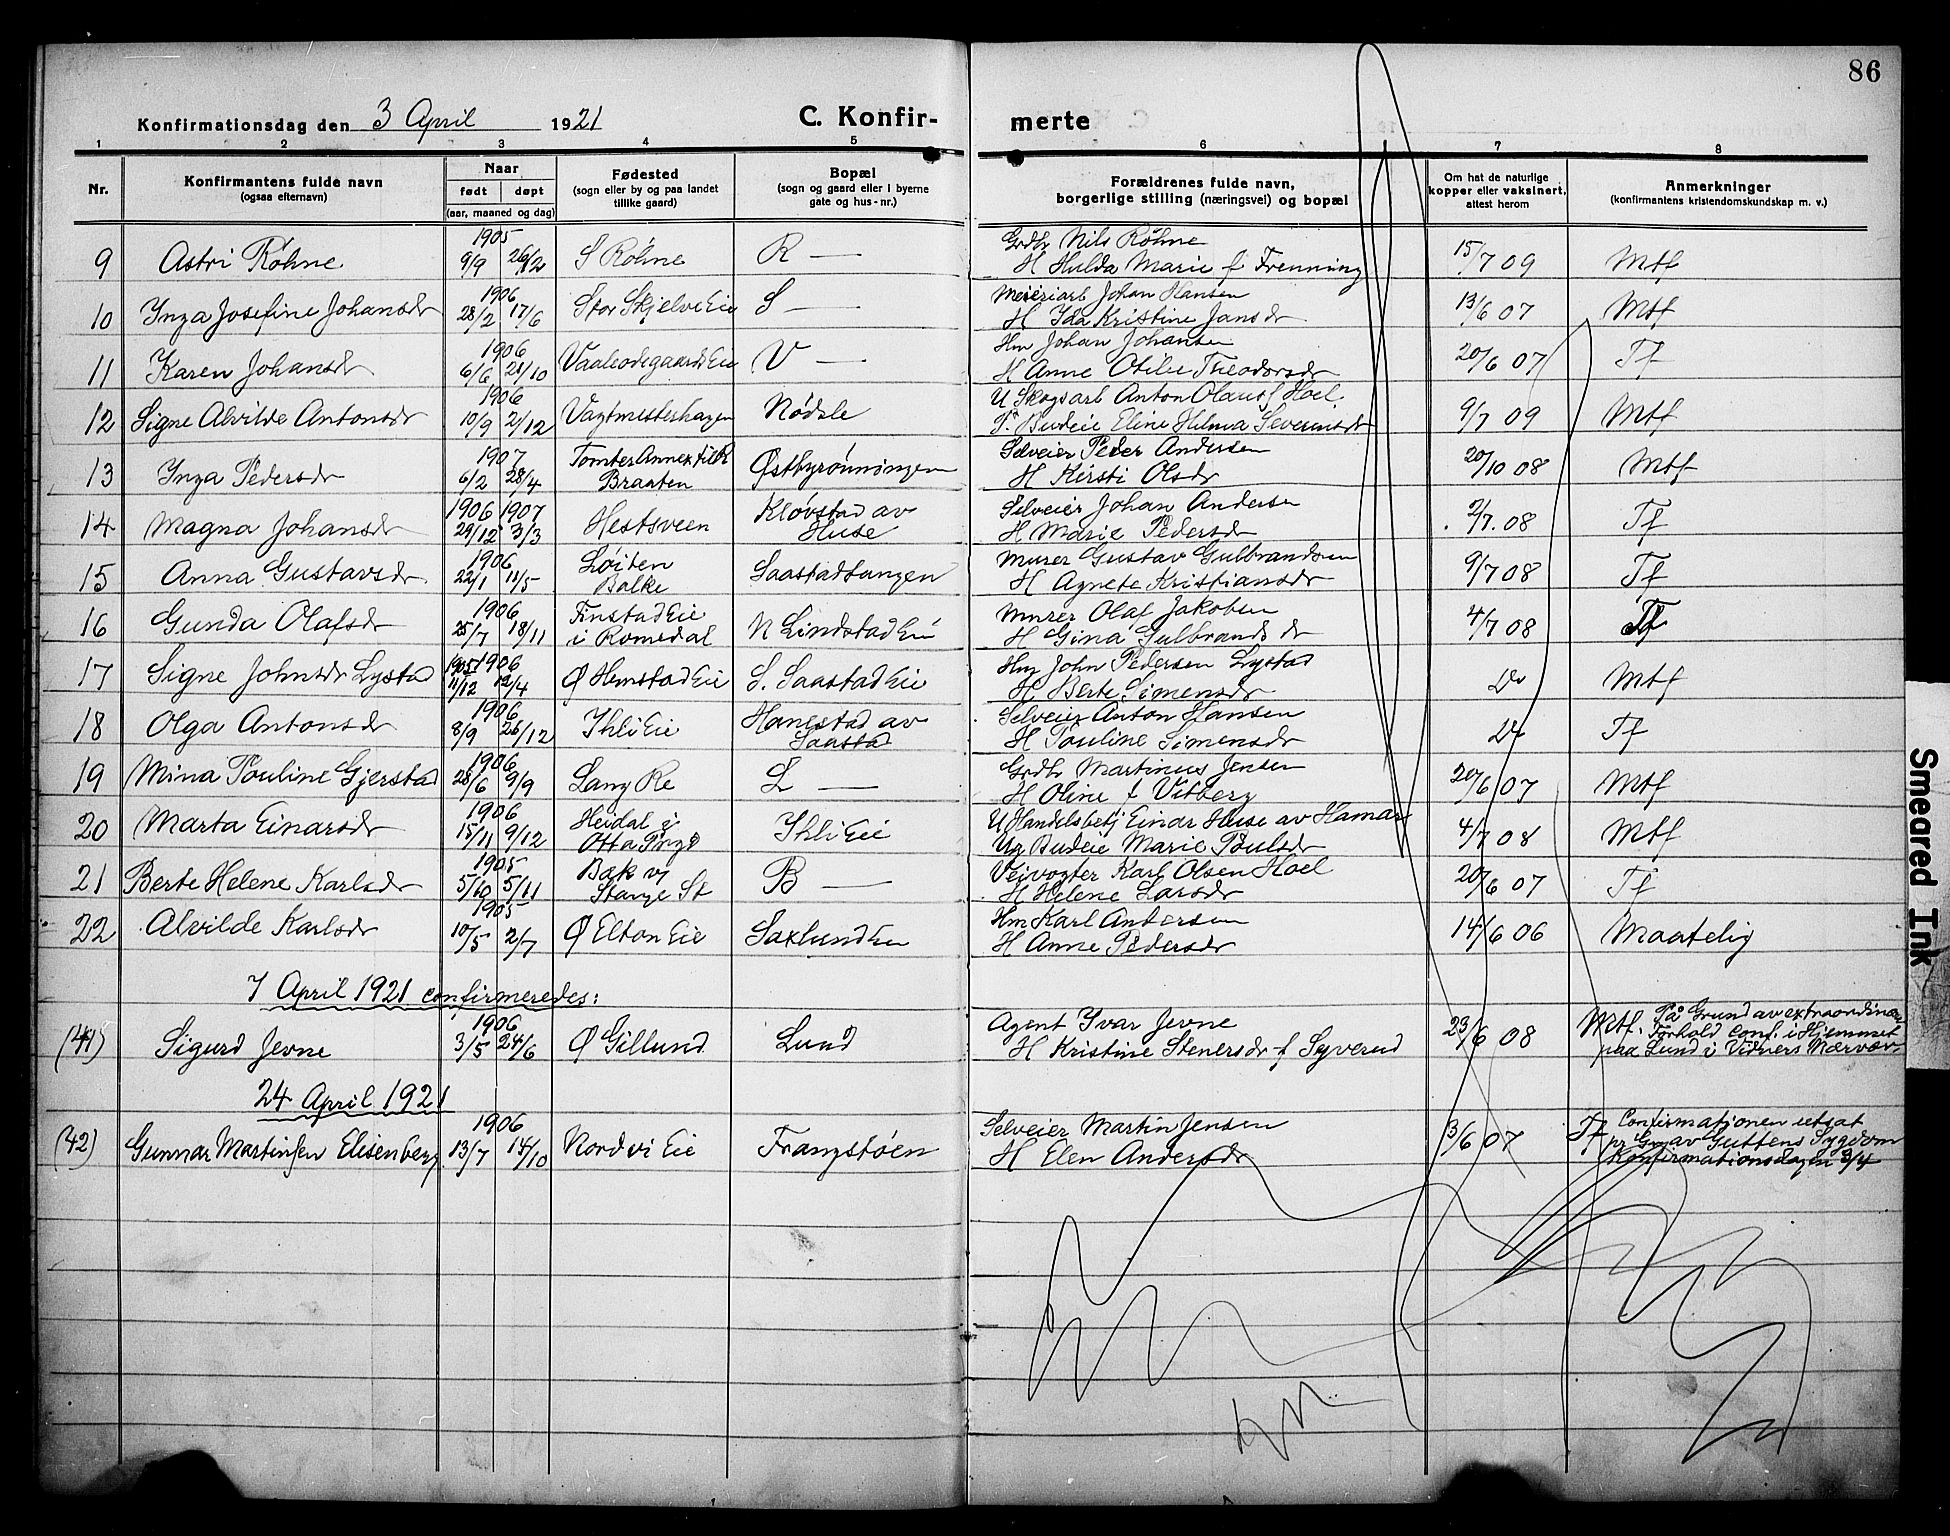 86
Konfirmationsdag den 3 April 1921 C. Konfirmerte
1 2 3 4 5 6 7 8
Nr. Konfirmantens fulde navn (ogsaa efternavn) Naar født døpt (aar, maaned og dag) Fødested (sogn eller by og paa landet tillike gaard) Bopæl (sogn og gaard eller i byerne gate og hus-nr.) Forældrenes fulde navn, borgerlige stilling (næringsvei) og bopæl Om hat de naturlige kopper eller vaksinert, attest herom Anmerkninger (konfirmantens kristendomskundskap m. v.)
9 Astri Röhne 1905 9/9 26/12 S Röhne R — Grdbr Nils Röhne
H Hulda Marie f Frenning 15/7 09 Mtf
10 Inga Josefine Johansdr 1906 28/2 17/6 Stor Skjelve Eie S — Meieriarb Johan Hansen
H Ida Kristine Jansdr 13/6 07 Mtf
11 Karen Johansdr 1906 6/6 21/10 Vaaleodegaard Eie V — Hm Johan Johansen
H Anne Otilie Theodorsdr 20/6 07 Tf
12 Signe Alvilde Antonsdr 1906 10/9 2/12 Vagtmesterhagen Nødsle U Skogsarb Anton Olauss Hoel
P. Budeie Eline Hilma Severinsdr 9/7 09 Mtf
13 Inga Pedersdr 1907 6/2 28/4 Tomter Annex til R
Braaten Østbyrønningen Selveier Peder Andersen
H Kirsti Olsdr 20/10 08 Mtf
14 Magna Johansdr 1906 1907 29/12 3/3 Hestsveen Kløvstad av
Huse Selveier Johan Andersen
H Marie Pedersdr 2/7 08 Tf
15 Anna Gustavsdr 1906 22/1 11/5 Løiten
Balke Saastadtangen Murer Gustav Gulbrandsen
H Agnete Kristiansdr 9/7 08 Tf
16 Gunda Olafsdr 1906 25/7 18/11 Finstad Eie
i Romedal N Lindstad Eie Murer Olaf Jakobsen
H Gina Gulbrandsdr 4/7 08 Tf
17 Signe Johnsdr Lystad 1905 1906 11/12 12/4 Ø Hemstad Eie S. Saastad Eie Hm John Pedersen Lystad
H Berte Simensdr Do Mtf
18 Olga Antonsdr 1906 8/9 26/12 Ihli Eie Hanestad av
Saastad Selveier Anton Hansen
H Pauline Simensdr Do Tf
19 Mina Pouline Gjerstad 1906 28/6 9/9 Lang Re L — Grdbr Martinius Jensen
H Oline f Vitberg 20/6 07 Mtf
20 Marta Einarsdr 1906 15/11 9/12 Heidal i
Otta Ihli Eie U Handelsbetj Einar Huse av Hamar
Ug Budeie Marie Poulsdr 4/7 08 Mtf
21 Berte Helene Karlsdr 1905 5/10 5/11 Bæk v/
Stange St B — Veivogter Karl Olsen Hoel
H Helene Larsdr 20/6 07 Tf
22 Alvilde Karlsdr 1905 10/5 2/7 Ø Elton Eie Saxlund Eie Hm Karl Andersen
H Anne Pedersdr 14/6 06 Maatelig
7 April 1921 confirmeredes:
(41) Sigurd Jevne 1906 3/5 24/6 Ø Gillund Lund Agent Ivar Jevne
H Kristine Stenersdr f Syverud 23/6 08 Mtf. På Grund av extraordinære
Forhold conf. i Hjemmet
paa Lund i Vidners Nærvær.
24 April 1921
(42) Gunnar Martinsen Elisenberg 1906 13/7 14/10 Nordvi Eie Frangstøen Selveier Martin Jensen
H Elen Andersdr 3/6 07 Tf Confirmationen utsat
pr Gr av Guttens Sygdom
Konfirmationsdagen 3/4
Smeared Ink